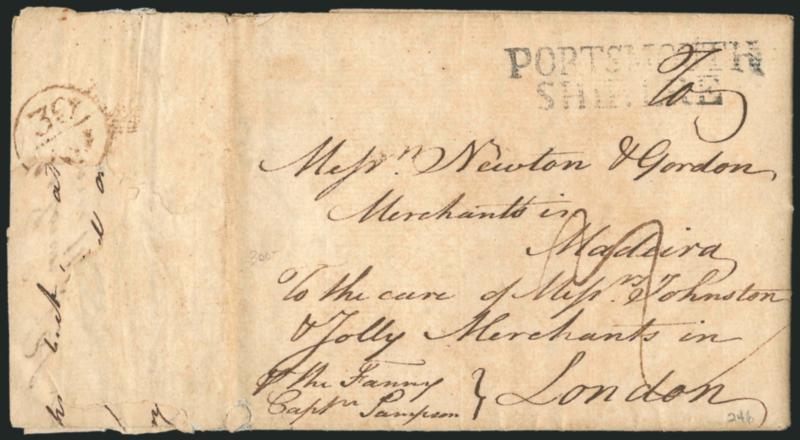 PORTSMOUTH
SHIP LRE
To
Messrs. Newton & Gordon
Merchants in
Madeira
To the care of Messrs. Johnston
& Jolly Merchants in
London
⅌ the Fanny
Captn Sampson
300-
246